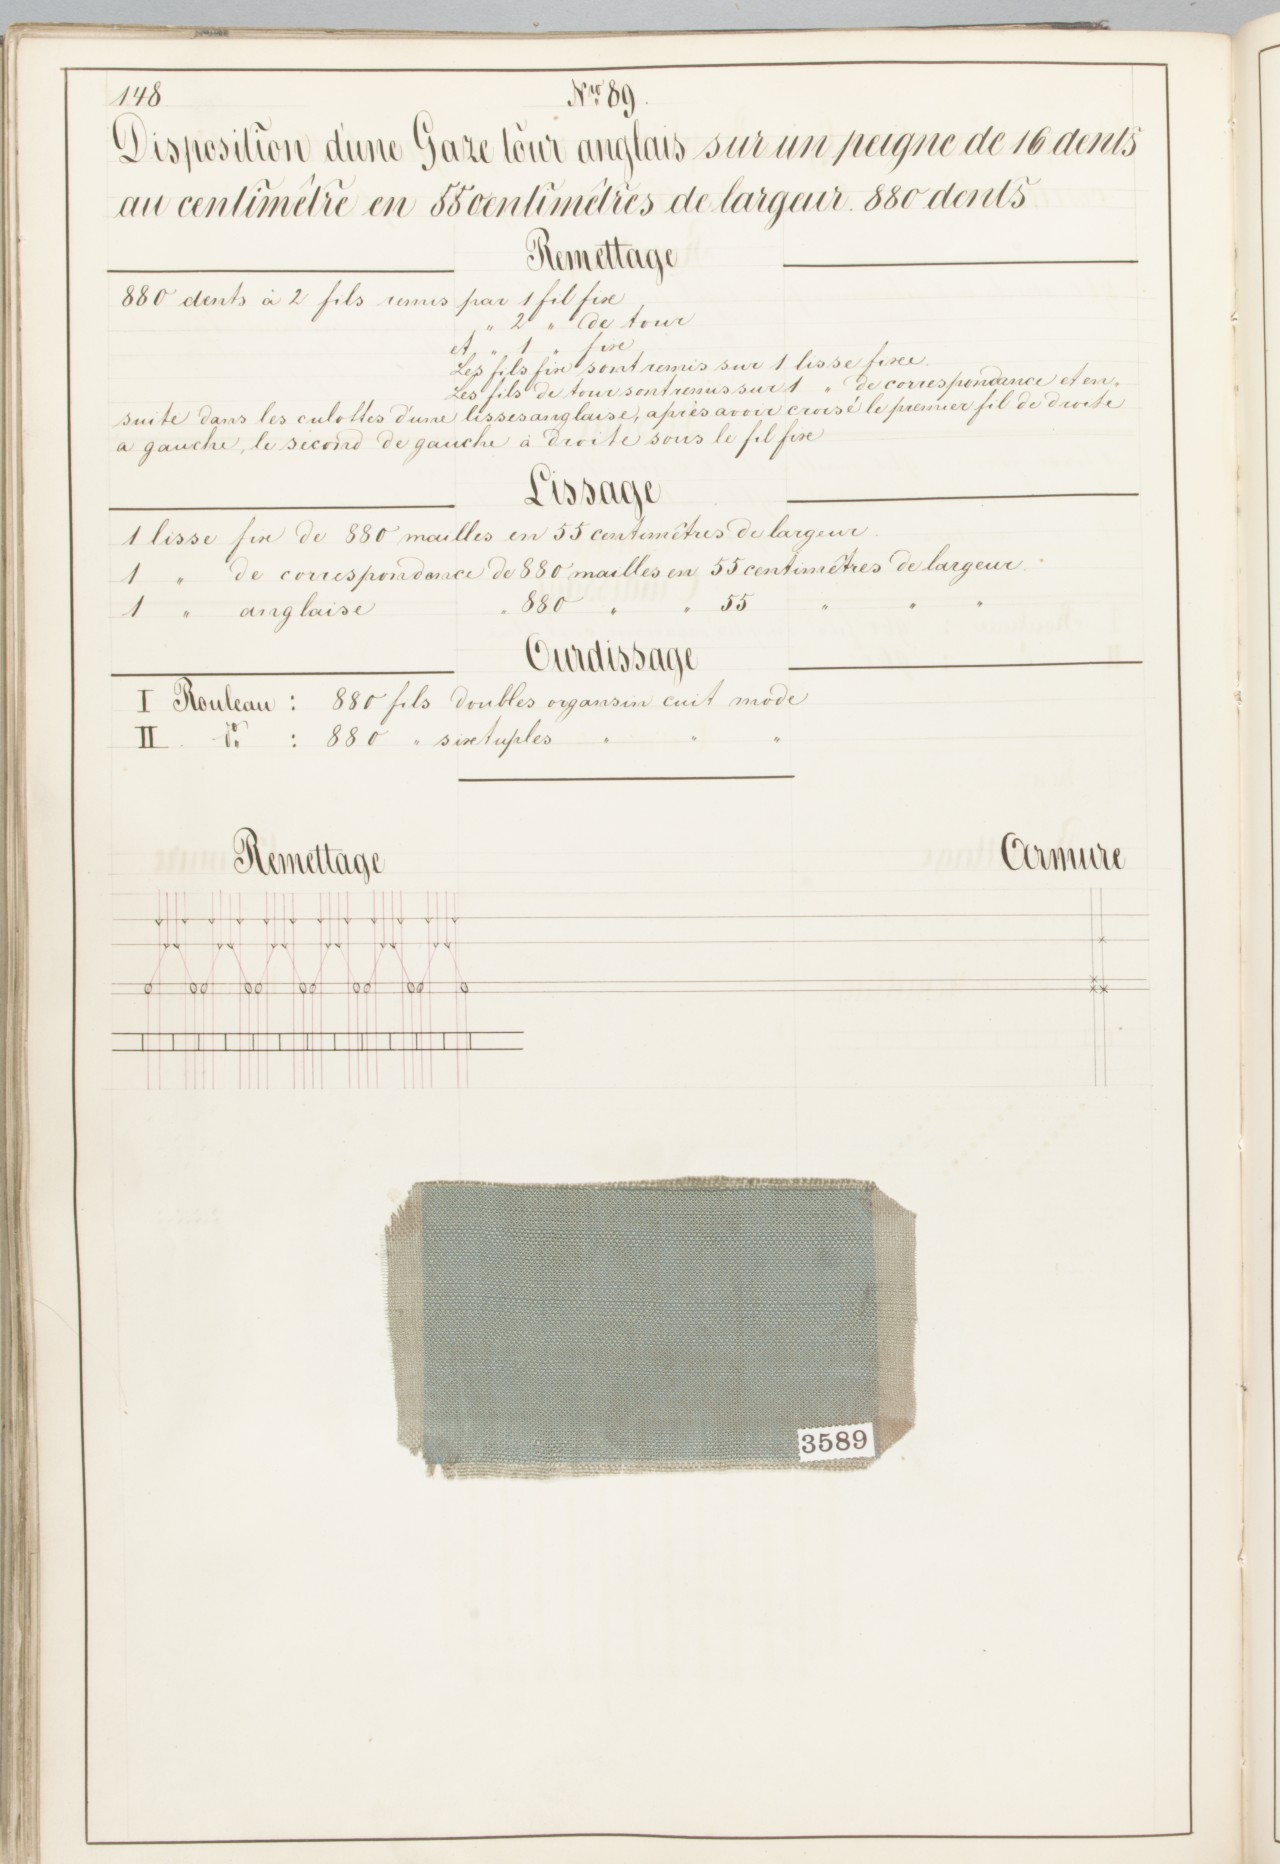 148
Nro 89.
Disposition d'une Gaze tour anglais sur un peigne de 16 dents
au centimètre en 55 centimètres de largeur. 880 dents
Remettage
880 dents à 2 fils remis par 1 fil fixe
" 2 " de tour
et " 1 " fixe
Les fils fix sont remis sur 1 lisse fixe.
Les fils de tour sont remis sur 1 " de correspondance et en-
suite dans les culottes d'une lisses anglaise, après avoir croisé le premier fil de droite
a gauche, le second de gauche à droite sous le fil fixe
Lissage
1 lisse fix de 880 mailles en 55 centimètres de largeur.
1 " de correspondance de 880 mailles en 55 centimètres de largeur.
1 " anglaise " 880 " " 55 " " "
Ourdissage
I Rouleau : 880 fils doubles organsin cuit mode
II do : 880 " sixtuples " " "
Remettage
Armure
3589